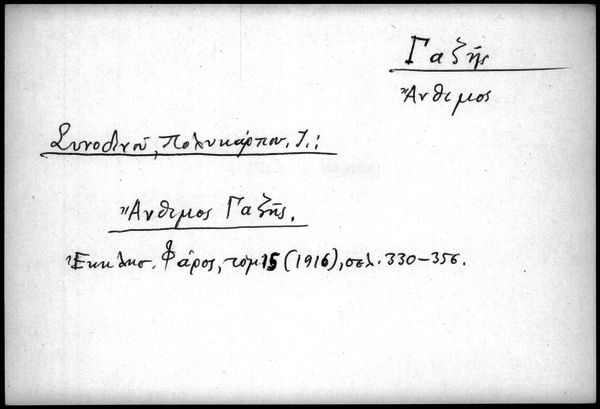 Γαζῆς
Ἄνθιμος
Συνοδινοῦ, Πολυκάρπου. Ι.:
Ἄνθιμος Γαζῆς.
Ἐκκλησ. Φάρος, τόμ. 15 (1916), σελ. 330-356.